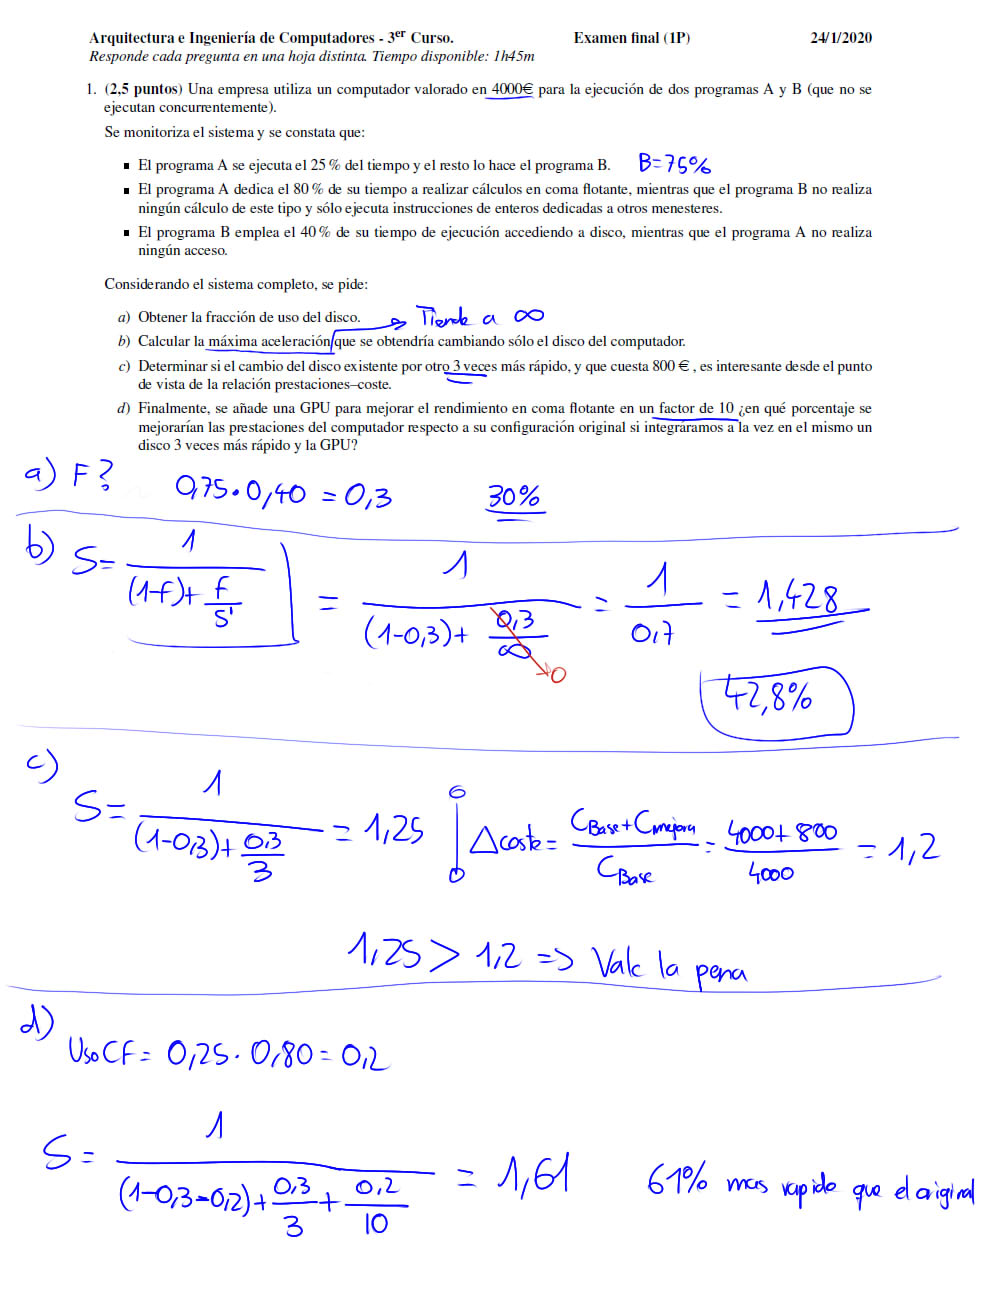 Arquitectura e Ingeniería de Computadores - 3er Curso. Examen final (1P) 24/1/2020
Responde cada pregunta en una hoja distinta. Tiempo disponible: 1h45m
1. (2,5 puntos) Una empresa utiliza un computador valorado en 4000€ para la ejecución de dos programas A y B (que no se
ejecutan concurrentemente).
Se monitoriza el sistema y se constata que:
▪ El programa A se ejecuta el 25 % del tiempo y el resto lo hace el programa B. B=75%
▪ El programa A dedica el 80 % de su tiempo a realizar cálculos en coma flotante, mientras que el programa B no realiza
ningún cálculo de este tipo y sólo ejecuta instrucciones de enteros dedicadas a otros menesteres.
▪ El programa B emplea el 40 % de su tiempo de ejecución accediendo a disco, mientras que el programa A no realiza
ningún acceso.
Considerando el sistema completo, se pide:
a) Obtener la fracción de uso del disco. → Tiende a ∞
b) Calcular la máxima aceleración que se obtendría cambiando sólo el disco del computador.
c) Determinar si el cambio del disco existente por otro 3 veces más rápido, y que cuesta 800 € , es interesante desde el punto
de vista de la relación prestaciones–coste.
d) Finalmente, se añade una GPU para mejorar el rendimiento en coma flotante en un factor de 10 ¿en qué porcentaje se
mejorarían las prestaciones del computador respecto a su configuración original si integráramos a la vez en el mismo un
disco 3 veces más rápido y la GPU?
a) F? 0,75·0,40 = 0,3 30%
b) S= 1 / ((1-f)+ f/S') = 1 / ((1-0,3)+ 0,3/∞) = 1/0,7 = 1,428
→0
42,8%
c) S= 1 / ((1-0,3)+ 0,3/3) = 1,25 Δcoste= (CBase+Cmejora)/CBase = (4000+800)/4000 = 1,2
1,25 > 1,2 => Vale la pena
d)
Uso CF = 0,25·0,80 = 0,2
S = 1 / ((1-0,3-0,2)+ 0,3/3 + 0,2/10) = 1,61 61% mas rapido que el original